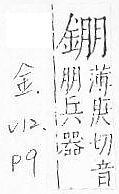 錋
薄庚切音
朋兵器
金.
v12.
p9